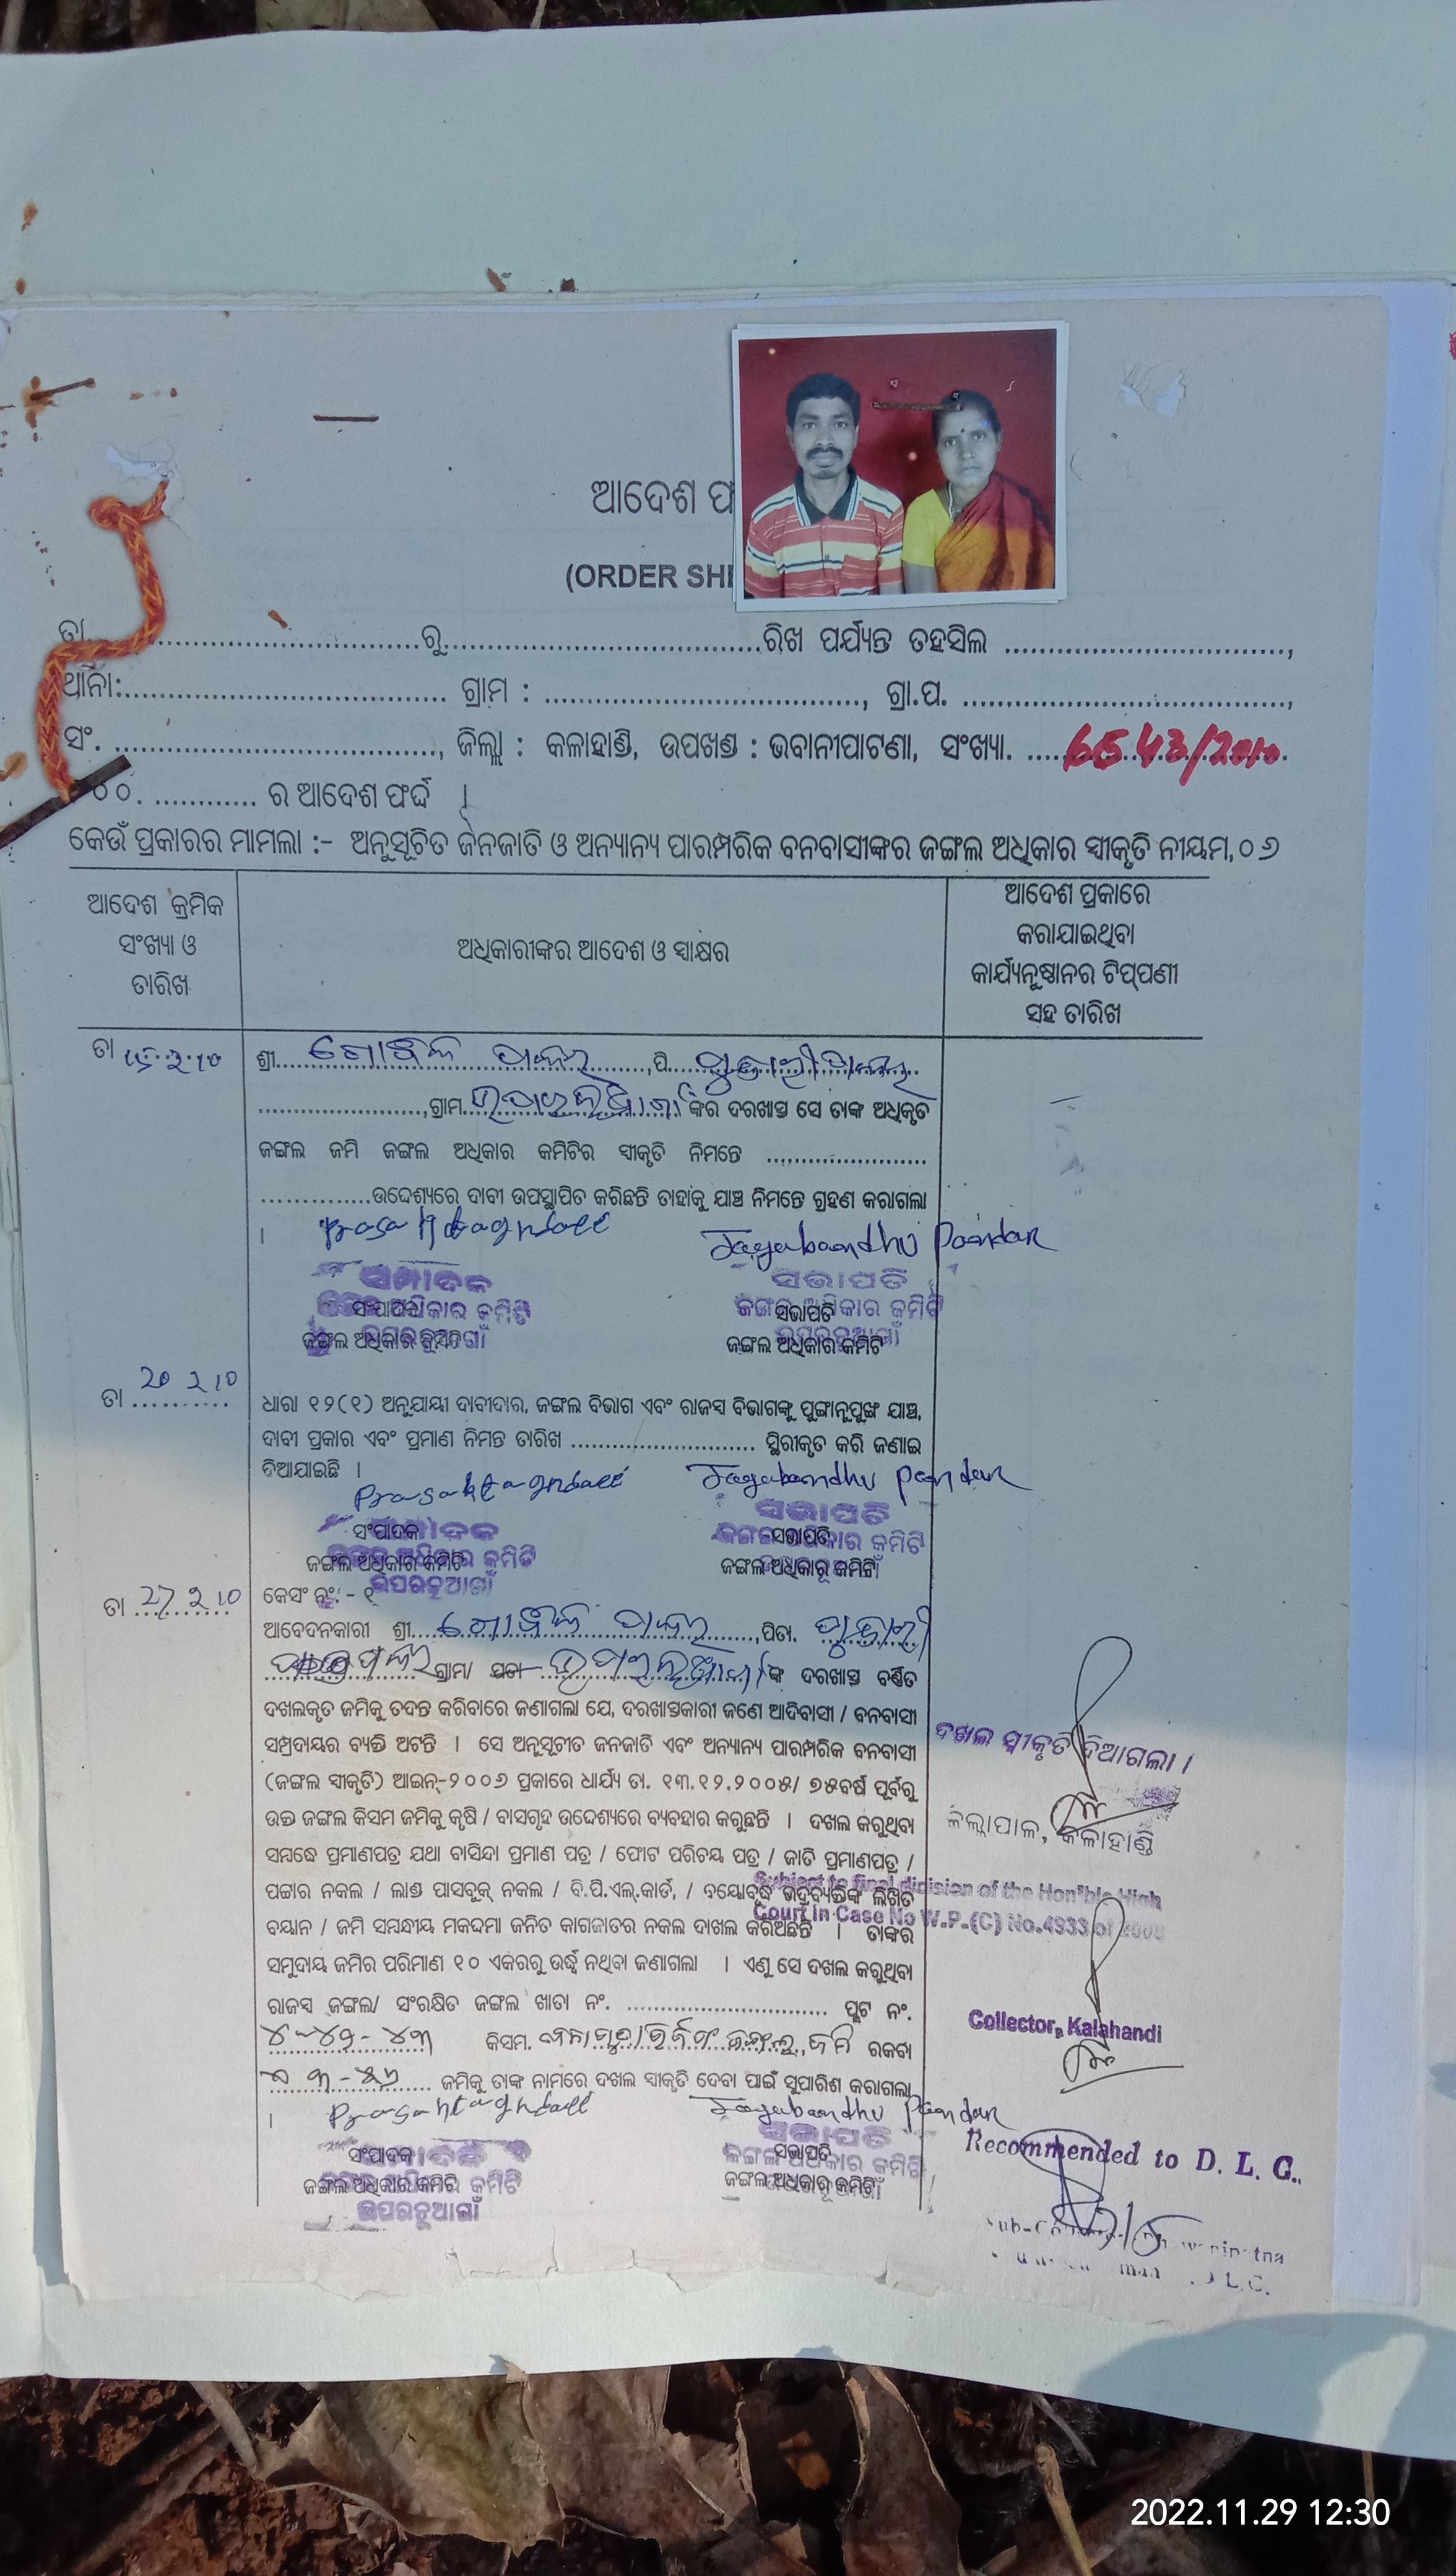 ଆଦେଶ ଫ
(ORDER SHE
ତା..............................ରୁ..............................ରିଖ ପର୍ଯ୍ୟନ୍ତ ତହସିଲ ..............................,
ଥାନା:.............................. ଗ୍ରାମ : .............................., ଗ୍ରା.ପ. ..............................,
ସଂ. .............................., ଜିଲ୍ଲା : କଳାହାଣ୍ଡି, ଉପଖଣ୍ଡ : ଭବାନୀପାଟଣା, ସଂଖ୍ୟା. 6543/2010
୦୦. ............ ର ଆଦେଶ ଫର୍ଦ୍ଦ ।
କେଉଁ ପ୍ରକାରର ମାମଲା :- ଅନୁସୂଚିତ ଜନଜାତି ଓ ଅନ୍ୟାନ୍ୟ ପାରମ୍ପରିକ ବନବାସୀଙ୍କର ଜଙ୍ଗଲ ଅଧିକାର ସ୍ୱୀକୃତି ନୀୟମ,୦୬
ଆଦେଶ କ୍ରମିକ
ସଂଖ୍ୟା ଓ
ତାରିଖ
ଅଧିକାରୀଙ୍କର ଆଦେଶ ଓ ସ୍ୱାକ୍ଷର
ଆଦେଶ ପ୍ରକାରେ
କରାଯାଇଥିବା
କାର୍ଯ୍ୟନୁଷ୍ଠାନର ଟିପ୍ପଣୀ
ସହ ତାରିଖ
ତା
ଶ୍ରୀ..............................,ପି..............................
......................,ଗ୍ରାମ ଙ୍କର ଦରଖାସ୍ତ ସେ ତାଙ୍କ ଅଧିକୃତ
ଜଙ୍ଗଲ ଜମି ଜଙ୍ଗଲ ଅଧିକାର କମିଟିର ସ୍ୱୀକୃତି ନିମନ୍ତେ ......................
..............ଉଦ୍ଦେଶ୍ୟରେ ଦାବୀ ଉପସ୍ଥାପିତ କରିଛନ୍ତି ତାହାକୁ ଯାଞ୍ଚ ନିମନ୍ତେ ଗ୍ରହଣ କରାଗଲା
।
Jagabandhu Pandar
ସମ୍ପାଦକ ସଭାପତି
ସଂପାଦକ ସଭାପତି
ଜଙ୍ଗଲ ଅଧିକାର କମିଟି ଜଙ୍ଗଲ ଅଧିକାର କମିଟି
ତା 20 2 10
ଧାରା ୧୨(୧) ଅନୁଯାୟୀ ଦାବୀଦାର, ଜଙ୍ଗଲ ବିଭାଗ ଏବଂ ରାଜସ୍ୱ ବିଭାଗଙ୍କୁ ପୁଙ୍ଖାନୁପୁଙ୍ଖ ଯାଞ୍ଚ,
ଦାବୀ ପ୍ରକାର ଏବଂ ପ୍ରମାଣ ନିମନ୍ତ ତାରିଖ ............................ ସ୍ଥିରୀକୃତ କରି ଜଣାଇ
ଦିଆଯାଇଛି ।
Jagabandhu Pandar
ସଂପାଦକ ସଭାପତି
ଜଙ୍ଗଲ ଅଧିକାର କମିଟି ଜଙ୍ଗଲ ଅଧିକାର କମିଟି
ତା 27 2 10
କେସଂ ନଂ. - ୧
ଆବେଦନକାରୀ ଶ୍ରୀ..............................,ପିତା.
ଗ୍ରାମ/ ଙ୍କ ଦରଖାସ୍ତ ବର୍ଣ୍ଣିତ
ଦଖଲକୃତ ଜମିକୁ ତଦନ୍ତ କରିବାରେ ଜଣାଗଲା ଯେ, ଦରଖାସ୍ତକାରୀ ଜଣେ ଆଦିବାସୀ / ବନବାସୀ
ସମ୍ପ୍ରଦାୟର ବ୍ୟକ୍ତି ଅଟନ୍ତି । ସେ ଅନୁସୂଚୀତ ଜନଜାତି ଏବଂ ଅନ୍ୟାନ୍ୟ ପାରମ୍ପରିକ ବନବାସୀ
(ଜଙ୍ଗଲ ସ୍ୱୀକୃତି) ଆଇନ୍-୨୦୦୬ ପ୍ରକାରେ ଧାର୍ଯ୍ୟ ତା. ୧୩.୧୨.୨୦୦୫/ ୭୫ବର୍ଷ ପୂର୍ବରୁ
ଉକ୍ତ ଜଙ୍ଗଲ କିସମ ଜମିକୁ କୃଷି / ବାସଗୃହ ଉଦ୍ଦେଶ୍ୟରେ ବ୍ୟବହାର କରୁଛନ୍ତି । ଦଖଲ କରୁଥିବା
ସମ୍ବନ୍ଧେ ପ୍ରମାଣପତ୍ର ଯଥା ବାସିନ୍ଦା ପ୍ରମାଣ ପତ୍ର / ଫୋଟ ପରିଚୟ ପତ୍ର / ଜାତି ପ୍ରମାଣପତ୍ର /
ପଟ୍ଟାର ନକଲ / ଲାଣ୍ଡ ପାସବୁକ୍ ନକଲ / ବି.ପି.ଏଲ୍.କାର୍ଡ, / ବୟୋବୃଦ୍ଧ ଭଦ୍ରବ୍ୟକ୍ତିଙ୍କ ଲିଖିତ
ବୟାନ / ଜମି ସମ୍ବନ୍ଧୀୟ ମକଦ୍ଦମା ଜନିତ କାଗଜାତର ନକଲ ଦାଖଲ କରିଅଛନ୍ତି । ତାଙ୍କର
ସମୁଦାୟ ଜମିର ପରିମାଣ ୧୦ ଏକରରୁ ଉର୍ଦ୍ଧ୍ୱ ନଥିବା ଜଣାଗଲା । ଏଣୁ ସେ ଦଖଲ କରୁଥିବା
ରାଜସ୍ୱ ଜଙ୍ଗଲ/ ସଂରକ୍ଷିତ ଜଙ୍ଗଲ ଖାତା ନଂ. ............................ ପ୍ଲଟ ନଂ.
କିସମ. ଜମି ରକବା
ଜମିକୁ ତାଙ୍କ ନାମରେ ଦଖଲ ସ୍ୱୀକୃତି ଦେବା ପାଇଁ ସୁପାରିଶ କରାଗଲା
।
Jagabandhu Pandar
ସଂପାଦକ ସଭାପତି
ଜଙ୍ଗଲ ଅଧିକାର କମିଟି ଜଙ୍ଗଲ ଅଧିକାର କମିଟି
ଦଖଲ ସ୍ୱୀକୃତି ଦିଆଗଲା ।
ଜିଲ୍ଲାପାଳ, କଳାହାଣ୍ଡି
Subject to final dicision of the Hon'ble High
Court in Case No W.P.(C) No.4933 of
Collector, Kalahandi
Recommended to D. L. C.
2022.11.29 12:30